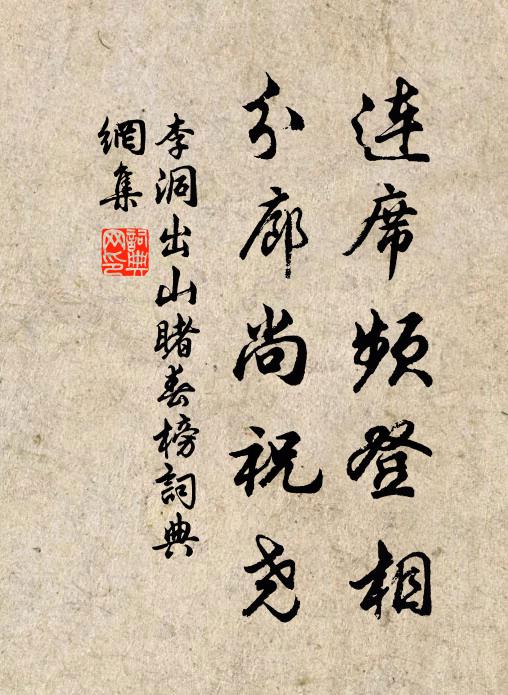 连席频登相
分廊尚祝尧
李洞出山睹春榜詞典
網集
詞典网印